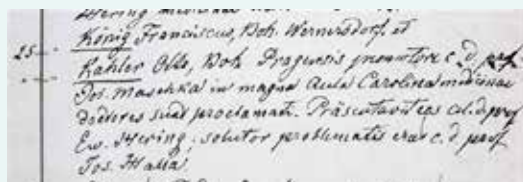 König Franciscus, Boh. Wernersdorf. et
25
Kahler Otto, Boh. Pragensis promotore c. d. prof
Jos. Maschka in magna Aula Carolina medicinae
doctores sunt proclamati. Präsentavit eos cel. d. prof
Ew. Hering; solutor problematis erat c. d. prof
Jos. Halla.